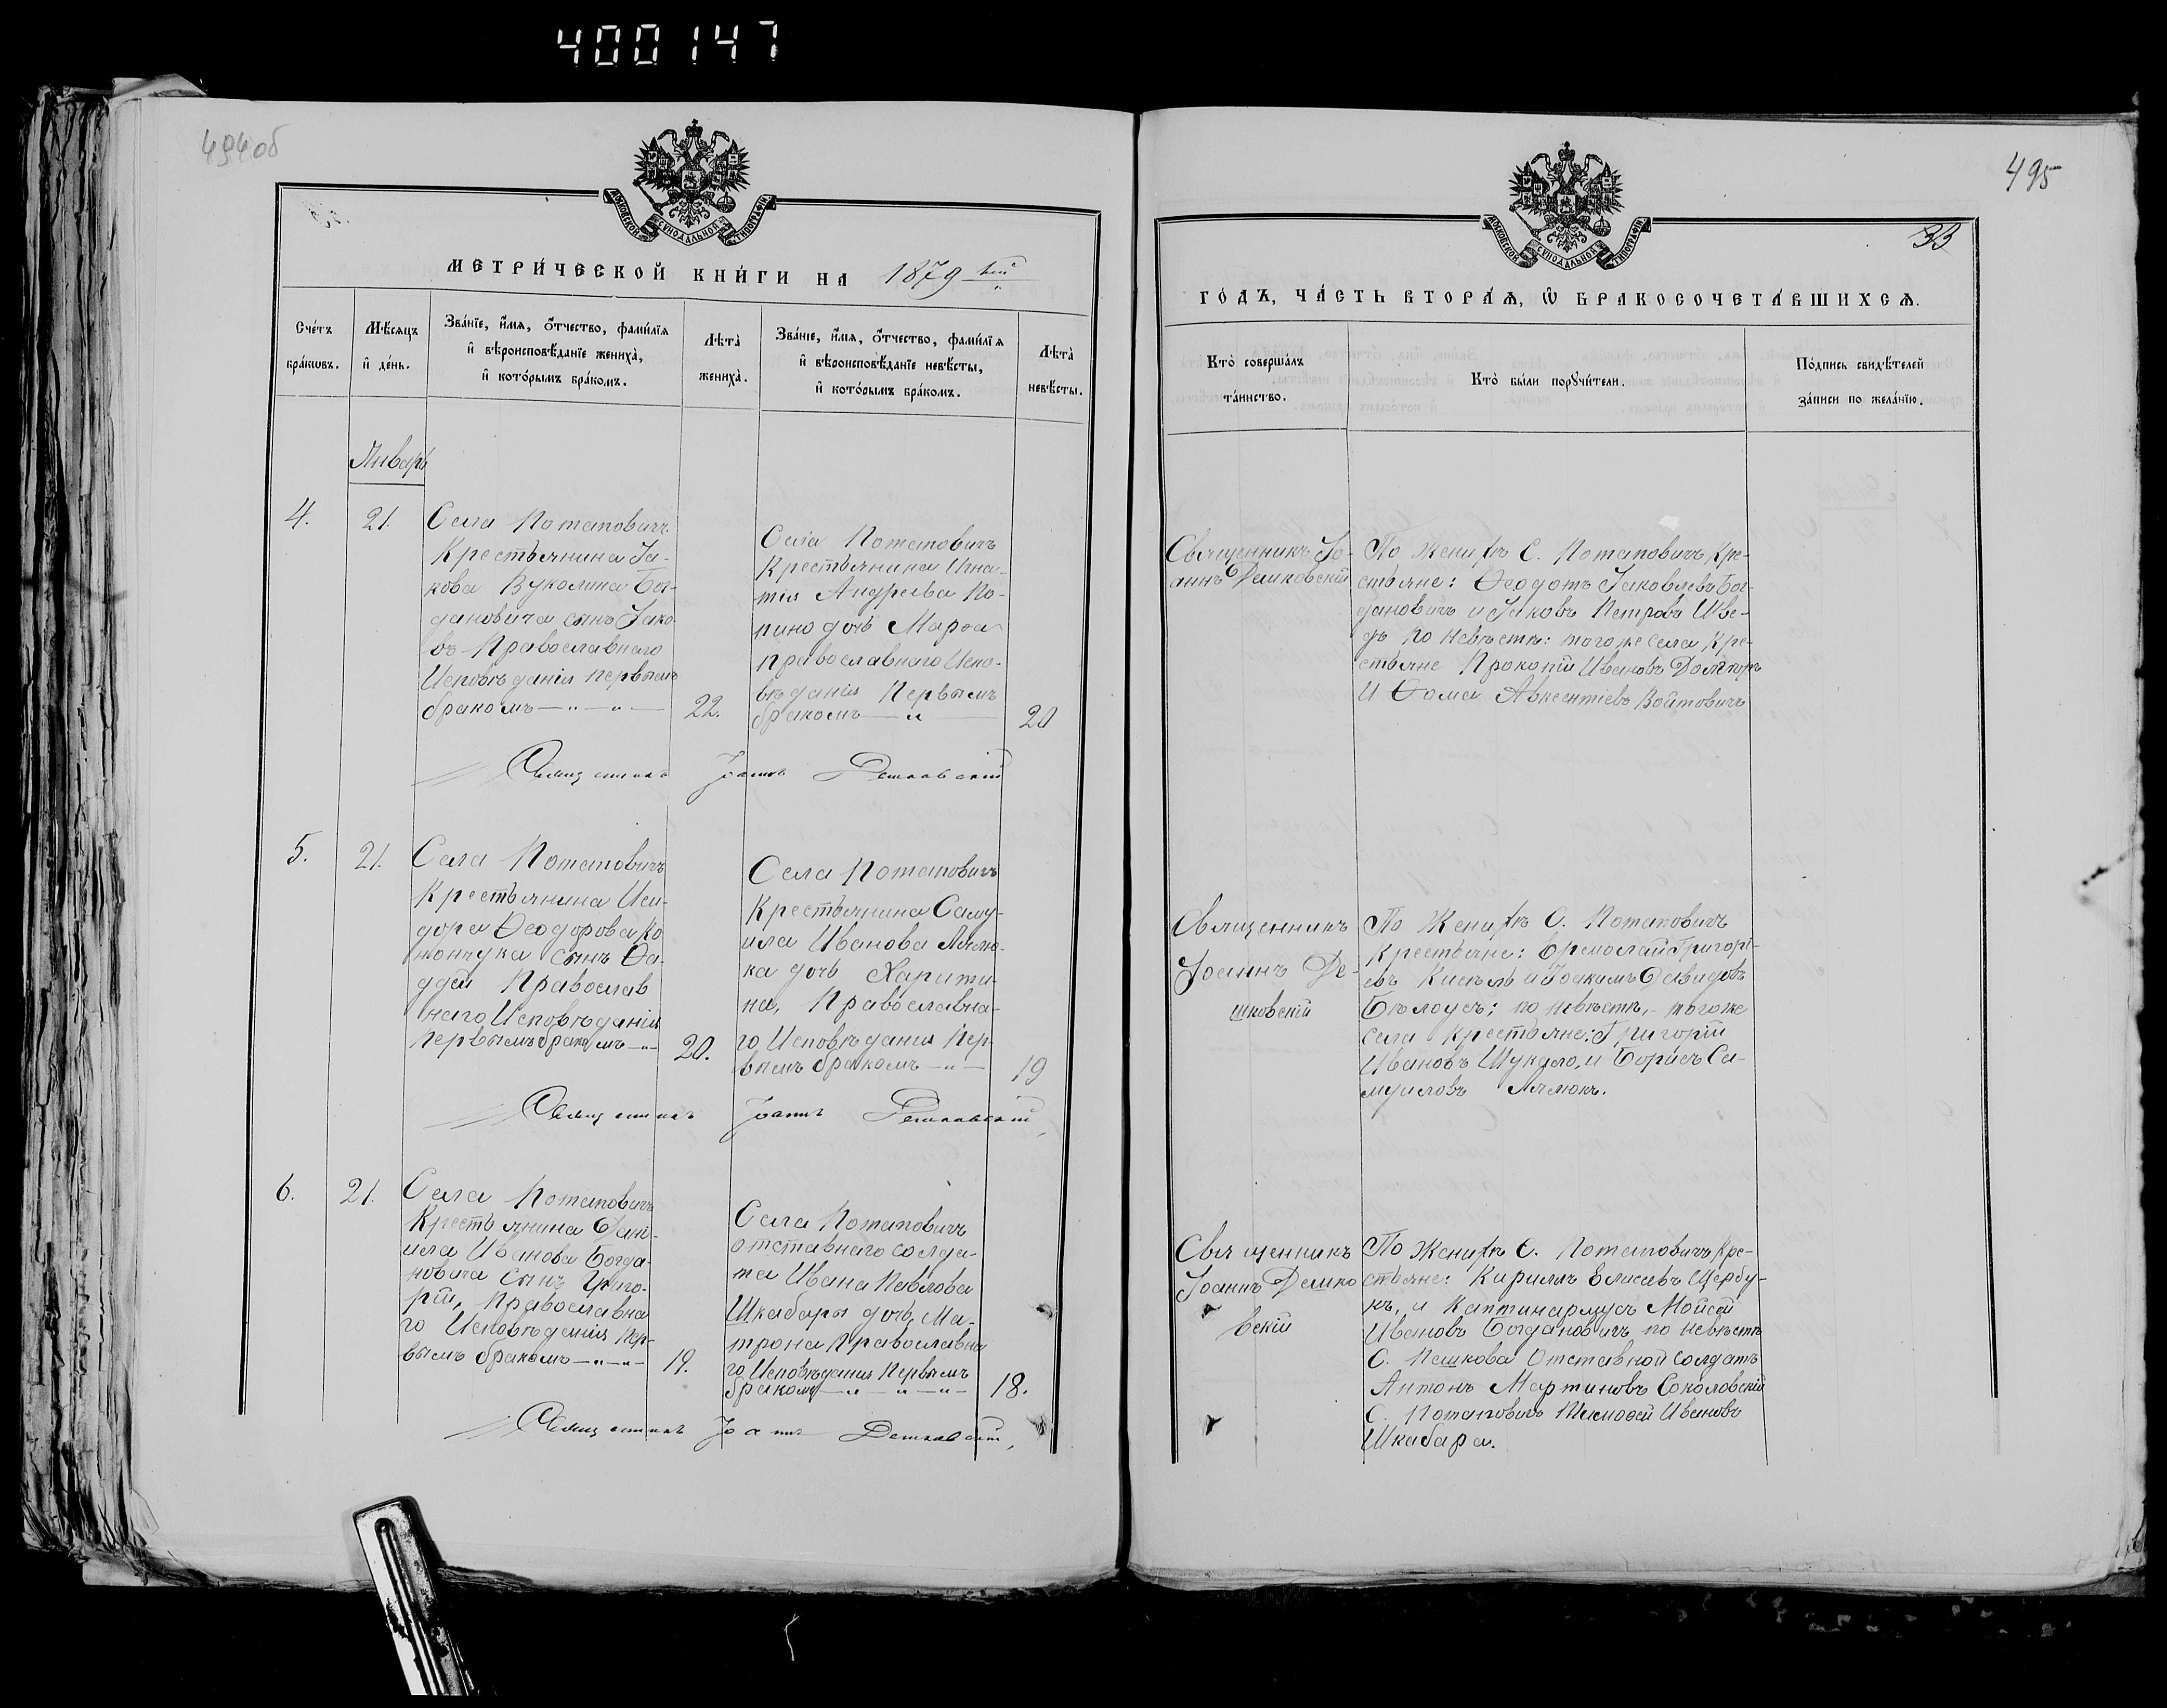 400147
494об
МОСКОВСКОЙ СѴНОДАЛЬНОЙ ТИПОГРАФІИ.
МЕТРИ́ЧЕСКОЙ КНИ́ГИ НА 1879
Сче́тъ бра́кѡвъ.
Мѣ́сяцъ и҆ де́нь.
Зва́нїе, и҆́мѧ, ѻ҆́тчество, фами́лїѧ и҆ вѣроисповѣ́данїе жениха̀, и҆ кото́рымъ бра́комъ.
Лѣта̀ жениха̀.
Зва́нїе, и҆́мѧ, ѻ҆́тчество, фами́лїѧ и҆ вѣроисповѣ́данїе невѣ́сты, и҆ кото́рымъ бра́комъ.
Лѣта̀ невѣ́сты.
Январь
4.
21.
Села Потаповичъ
Крестьянина Іа-
кова Вуколина Бог-
дановича сынъ Іако-
въ Православнаго
Исповѣданія первымъ
бракомъ
22.
Села Потаповичъ
Крестьянина Игна-
тія Андреева По-
пино дочь Марѳа
православнаго Испо-
вѣданія Первымъ
бракомъ
20
Священникъ Іоаннъ Дешковскій
5.
21.
Села Потаповичъ
Крестьянина Иси-
дора Ѳеодорова Ко
нончука сынъ Ѳа-
ддей Православ
наго Исповѣданія
Первымъ бракомъ
20.
Села Потаповичъ
Крестьянина Саму-
ила Иванова Лялю-
ка дочь Харити-
на, Православна-
го Исповѣданія Пер-
вымъ бракомъ
19
Священникъ Іоаннъ Дешковскій,
6.
21.
Села Потаповичъ
Крестьянина Дані-
ила Иванова Богда-
новича сынъ Григо-
рій, Православна
го Исповѣданія Пер-
вымъ бракомъ
19.
Села Потаповичъ
отставнаго солда-
та Ивана Павлова
Шкабары дочь, Ма-
трона Православна
го Исповѣданія Первымъ
бракомъ
18.
Священникъ Іоаннъ Дешковскій,
495
33
МОСКОВСКОЙ СѴНОДАЛЬНОЙ ТИПОГРАФІИ.
ГО́ДЪ, ЧА́СТЬ ВТОРА́Ѧ, Ѽ БРАКОСОЧЕТА́ВШИХСѦ.
Кто̀ соверша́лъ та́инство.
Кто̀ бы́ли порꙋчи́тели.
По́дпись свидѣ́телей за́писи по жела́нїю.
Священникъ Іо-
аннъ Дешковскій
По Женихѣ С. Потаповичъ Кре-
стьяне: Ѳеодотъ Іаковлевъ Бог-
дановичъ и Іаковъ Петровъ Шве-
дъ по Невѣстѣ: тогоже села Кре-
стьяне Прокопій Ивановъ
И Ѳома Авксентіевъ Войтовичъ
Священникъ
Іоаннъ Де-
шковскій
По Женихѣ С. Потаповичъ
Крестьяне: Ермолай Григорі-
евъ Кисель и Іоакимъ Давидовъ
Бѣлоусъ; по невѣстѣ, тогоже
села Крестьяне: Григорій
Ивановъ Шукало, и Борисъ Са-
муиловъ Лялюкъ.
Священникъ
Іоаннъ Дешко
вскій
По Женихѣ С. Потаповичъ Кре-
стьяне: Кириллъ Елисеевъ Щербу-
къ, и Каптинармусъ Мойсей
Ивановъ Богдановичъ по невѣстѣ
С. Пешкова Отставной солдатъ
Антонъ Мартиновъ Соколовскій
С. Потаповичъ Тимоѳей Ивановъ
Шкабара.